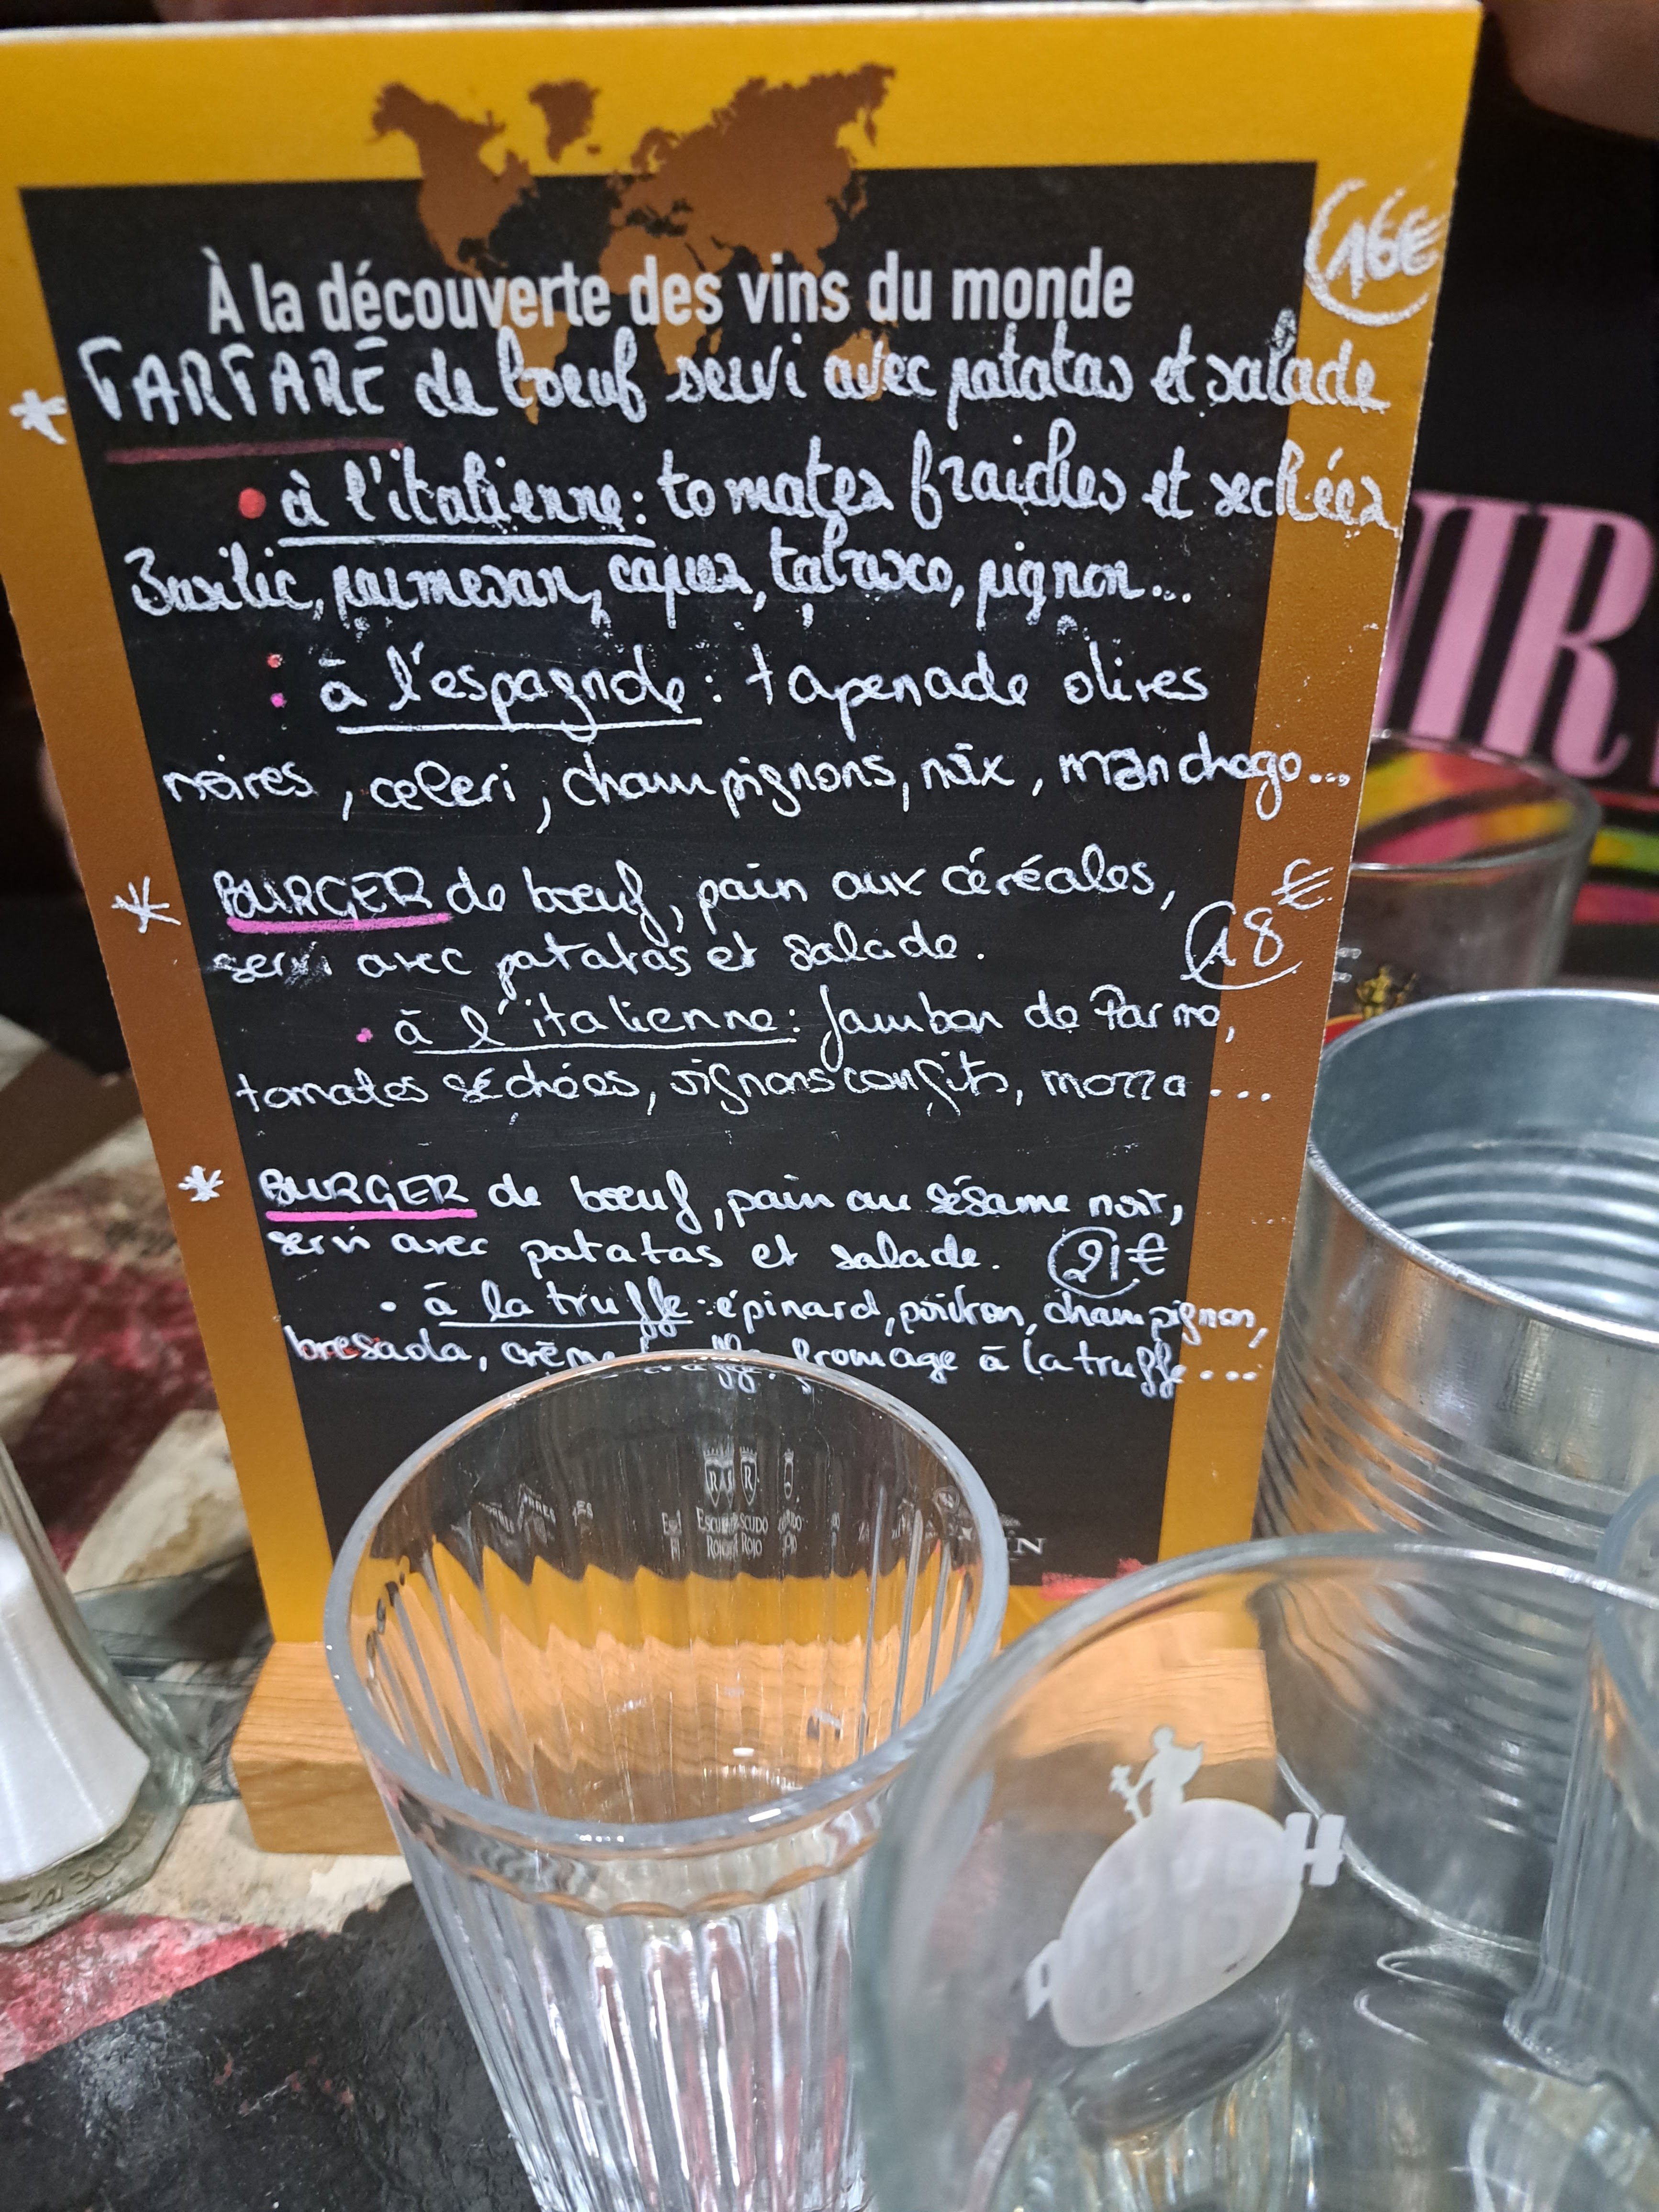 16€
À la découverte des vins du monde
* TARTARE de boeuf servi avec patatas et salade
• à l'italienne : tomates fraiches et sechées
Basilic, parmesan, capres, tabasco, pignon...
à l'espagnole : tapenade olives
noires, celeri, champignons, noix, manchego...
* BURGER de boeuf, pain aux céréales,
servi avec patatas et salade. 18€
• à l'italienne : Jambon de Parme,
tomates séchées, oignons confits, mozza...
* BURGER de boeuf, pain au sésame noir,
servi avec patatas et salade. 21€
• à la truffe : épinard, poivron, champignon,
bresaola, crème fromage à la truffe...
ESCUDO
ROJO